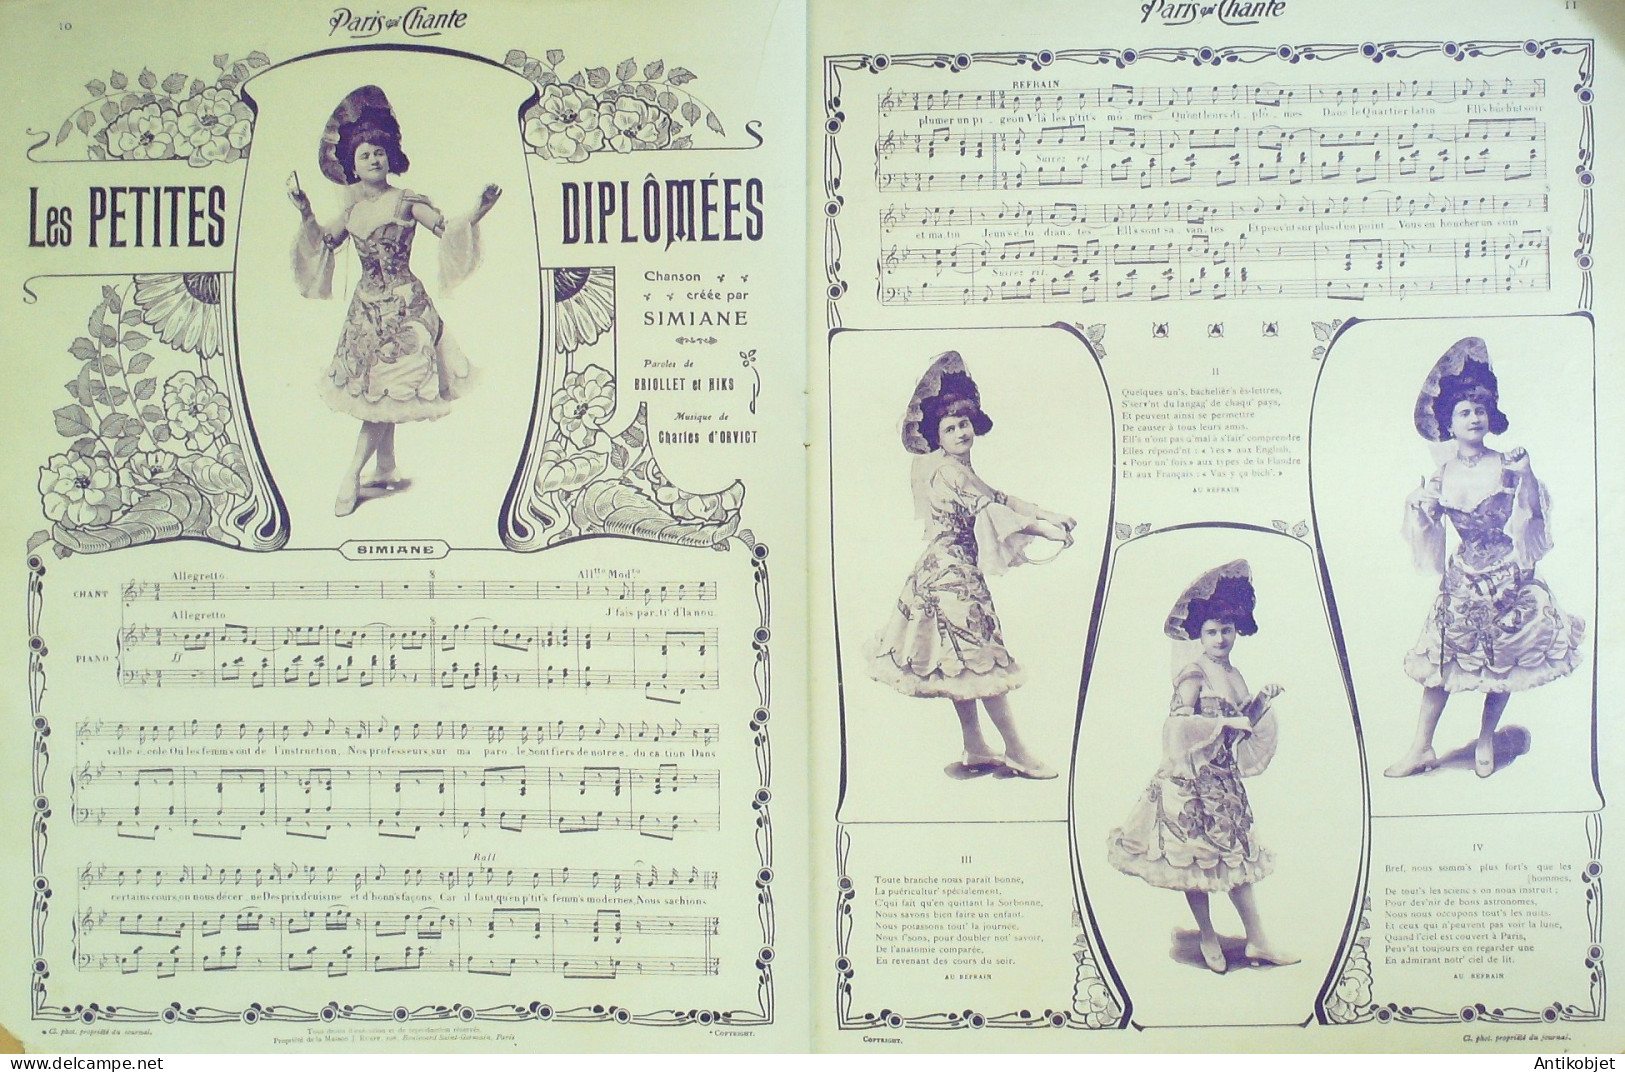 10
Paris qui Chante
Les PETITES
DIPLÔMÉES
Chanson
créée par
SIMIANE
Paroles de
BRIOLLET et HIKS
Musique de
Charles d'ORVICT
SIMIANE
Allegretto.
Alltto Modto
CHANT
J'fais par.ti' d'la nou.
Allegretto
PIANO
ff
velle é.cole Où les femm's ont de l'instruction, Nos professeurs, sur ma paro.le Sont fiers de notre é.du ca.tion Dans
Rall
certains cours, on nous décer.ne Des prix d'cuisine et d'bonn's façons, Car il faut, qu'en p'tit's femm's modernes, Nous sachions
Cl. phot. propriété du journal.
Tous droits d'exécution et de reproduction réservés.
Propriété de la Maison J. Rueff, 106, Boulevard Saint-Germain, Paris
COPYRIGHT.
Paris qui Chante
11
REFRAIN
plumer un pi_geon V'là les p'tit's mô_mes Qu'ont leurs di_plô_mes Dans le Quartier latin Ell's bûch'nt soir
Suivez rit.
et ma.tin Jeun's é.tu.dian_tes Ell's sont sa_van.tes Et peuv'nt sur plus d'un point Vous en boucher un coin
Suivez rit.
ff
II
Quelques un's, bachelièr's ès-lettres,
S'serv'nt du langag' de chaqu' pays,
Et peuvent ainsi se permettre
De causer à tous leurs amis.
Ell's n'ont pas d'mal à s'fair' comprendre
Elles répond'nt : « Yes » aux English,
« Pour un' fois » aux types de la Flandre
Et aux Français : « Vas-y ça bich'. »
AU REFRAIN
III
Toute branche nous paraît bonne,
La puéricultur' spécialement,
C'qui fait qu'en quittant la Sorbonne,
Nous savons bien faire un enfant.
Nous potassons tout' la journée,
Nous f'sons, pour doubler not' savoir,
De l'anatomie comparée,
En revenant des cours du soir.
AU REFRAIN
IV
Bref, nous somm's plus fort's que les
[hommes,
De tout's les scienc's on nous instruit ;
Pour dev'nir de bons astronomes,
Nous nous occupons tout's les nuits.
Et ceux qui n'peuvent pas voir la lune,
Quand l'ciel est couvert à Paris,
Peuv'nt toujours en regarder une
En admirant notr' ciel de lit.
AU REFRAIN
COPYRIGHT.
Cl. phot. propriété du journal.
Antikobjet